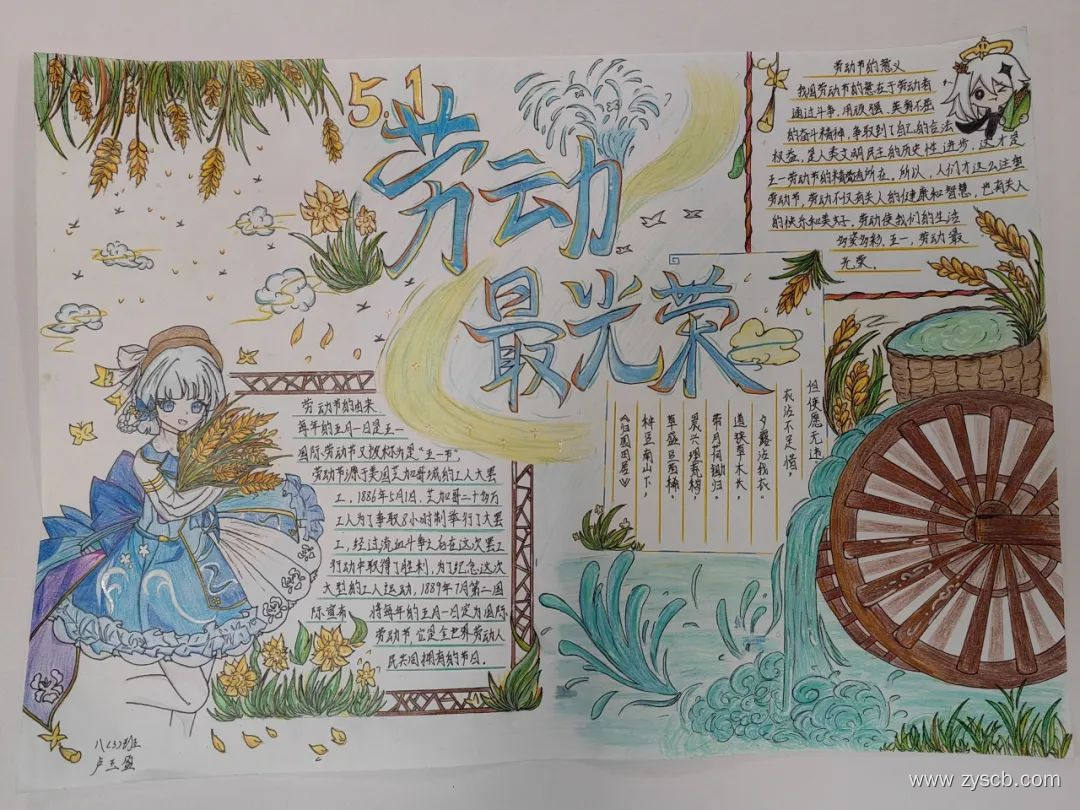 5.1
劳动
最光荣
劳动节的意义
我国劳动节的意在于劳动者
通过斗争,用顽强、英勇不屈
的奋斗精神,争取到了自己的合法
权益,是人类文明民主的历史性进步,这才是
五一劳动节的精髓所在。所以,人们才这么注重
劳动节,劳动不仅有关人的健康和智慧,也有关人
的快乐和美好。劳动使我们的生活
多姿多彩,五一,劳动最
光荣。
劳动节的由来
每年的五月一日是五一
国际劳动节又被称为是“五一节”。
劳动节源于美国艾加哥城的工人大罢
工,1886年5月1日,艾加哥二十多万
工人为了争取8小时制举行了大罢
工,经过流血斗争之后在这次罢工
行动中取得了胜利,为了纪念这次
大型的工人运动,1889年7月第二国
际宣布 将每年的五月一日定为国际
劳动节 它是全世界劳动人
民共同拥有的节日。
《归园田居》
种豆南山下,
草盛豆苗稀
晨兴理荒秽,
带月荷锄归。
道狭草木长,
夕露沾我衣。
衣沾不足惜,
但使愿无违
八(3)班
卢玉盈
www.zyscb.com